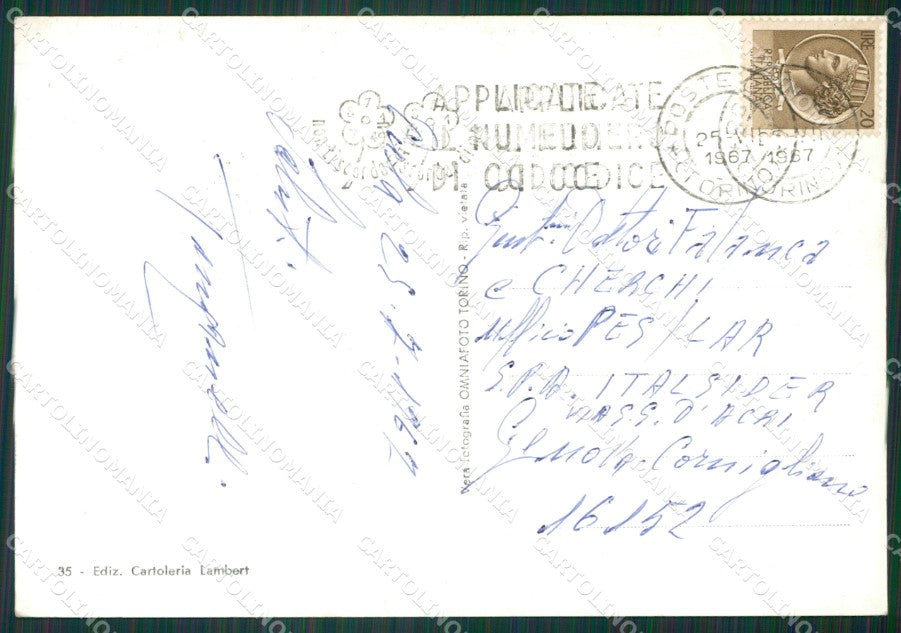 LIRE 20
POSTE
25-
1967 1967
TORINO TORINO
APPLICATE
IL NUMERO
DI CODICE
25-7-1967
Saluti.
Gent.mi Dottori Falanca
e CHERCHI
Ufficio PES/LAR
S.P.A. ITALSIDER
VIA S.G. D'ACRI
Genova-Cornigliano
16152
Vera fotografia OMNIAFOTO TORINO - Rip. vietata
35 - Ediz. Cartoleria Lambert
CARTOLINOMANIA